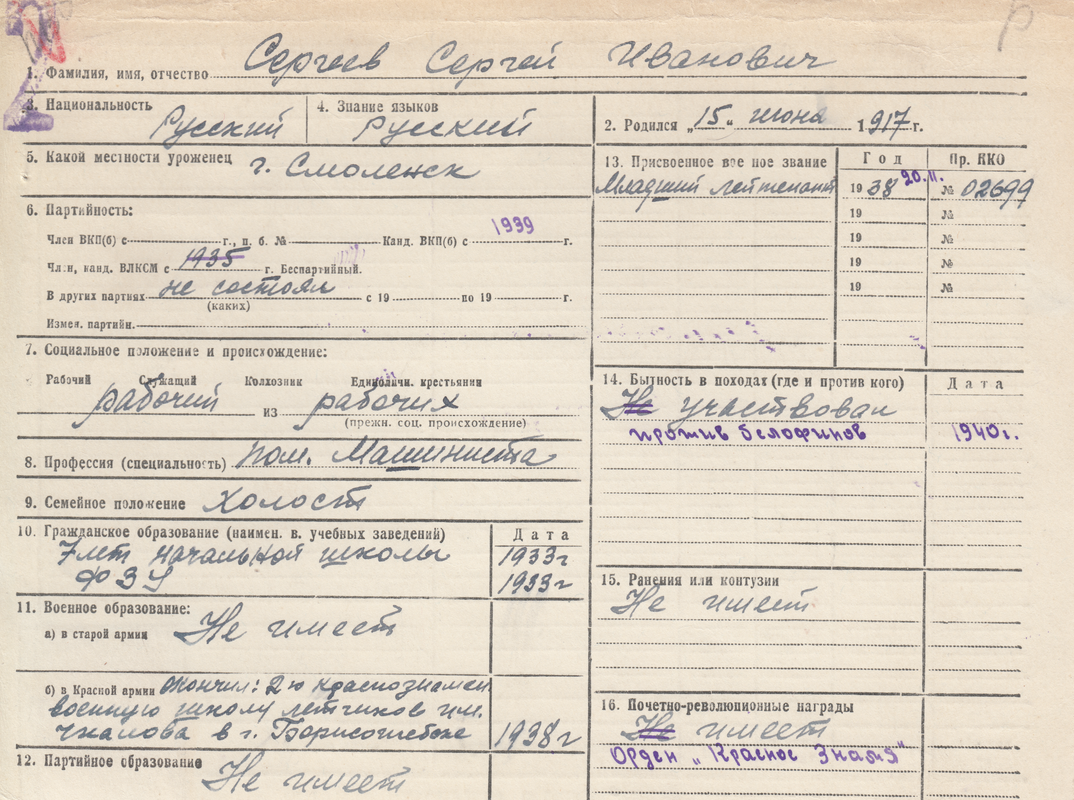 1. Фамилия, имя, отчество Сергеев Сергей Иванович
3. Национальность Русский
4. Знание языков русский
2. Родился „15“ июня 1917 г.
5. Какой местности уроженец г. Смоленск
6. Партийность:
Член ВКП(б) с г., п. б. № Канд. ВКП(б) с 1939 г.
Член, канд. ВЛКСМ с 1935 г. Беспартийный.
В других партиях не состоял с 19 по 19 г.
(каких)
Измен. партийн.
7. Социальное положение и происхождение:
Рабочий Служащий Колхозник Единоличн. крестьянин
рабочий из рабочих
(прежн. соц. происхождение)
8. Профессия (специальность) пом. Машиниста
9. Семейное положение холост
10. Гражданское образование (наимен. в. учебных заведений) Дата
7 лет начальной школы 1933г
ФЗУ 1933г
11. Военное образование:
а) в старой армии Не имеет
б) в Красной армии Окончил: 2-ю краснознамен
военную школу летчиков им.
Чкалова в г. Борисоглебске 1938г
12. Партийное образование Не имеет
13. Присвоенное вое ное звание Год Пр. НКО
Младший лейтенант 1938 20.11. № 02699
19 №
19 №
19 №
19 №
14. Бытность в походах (где и против кого) Дата
Не участвовал
против белофинов 1940г.
15. Ранения или контузии
Не имеет
16. Почетно-революционные награды
Не имеет
Орден „Красное Знамя"